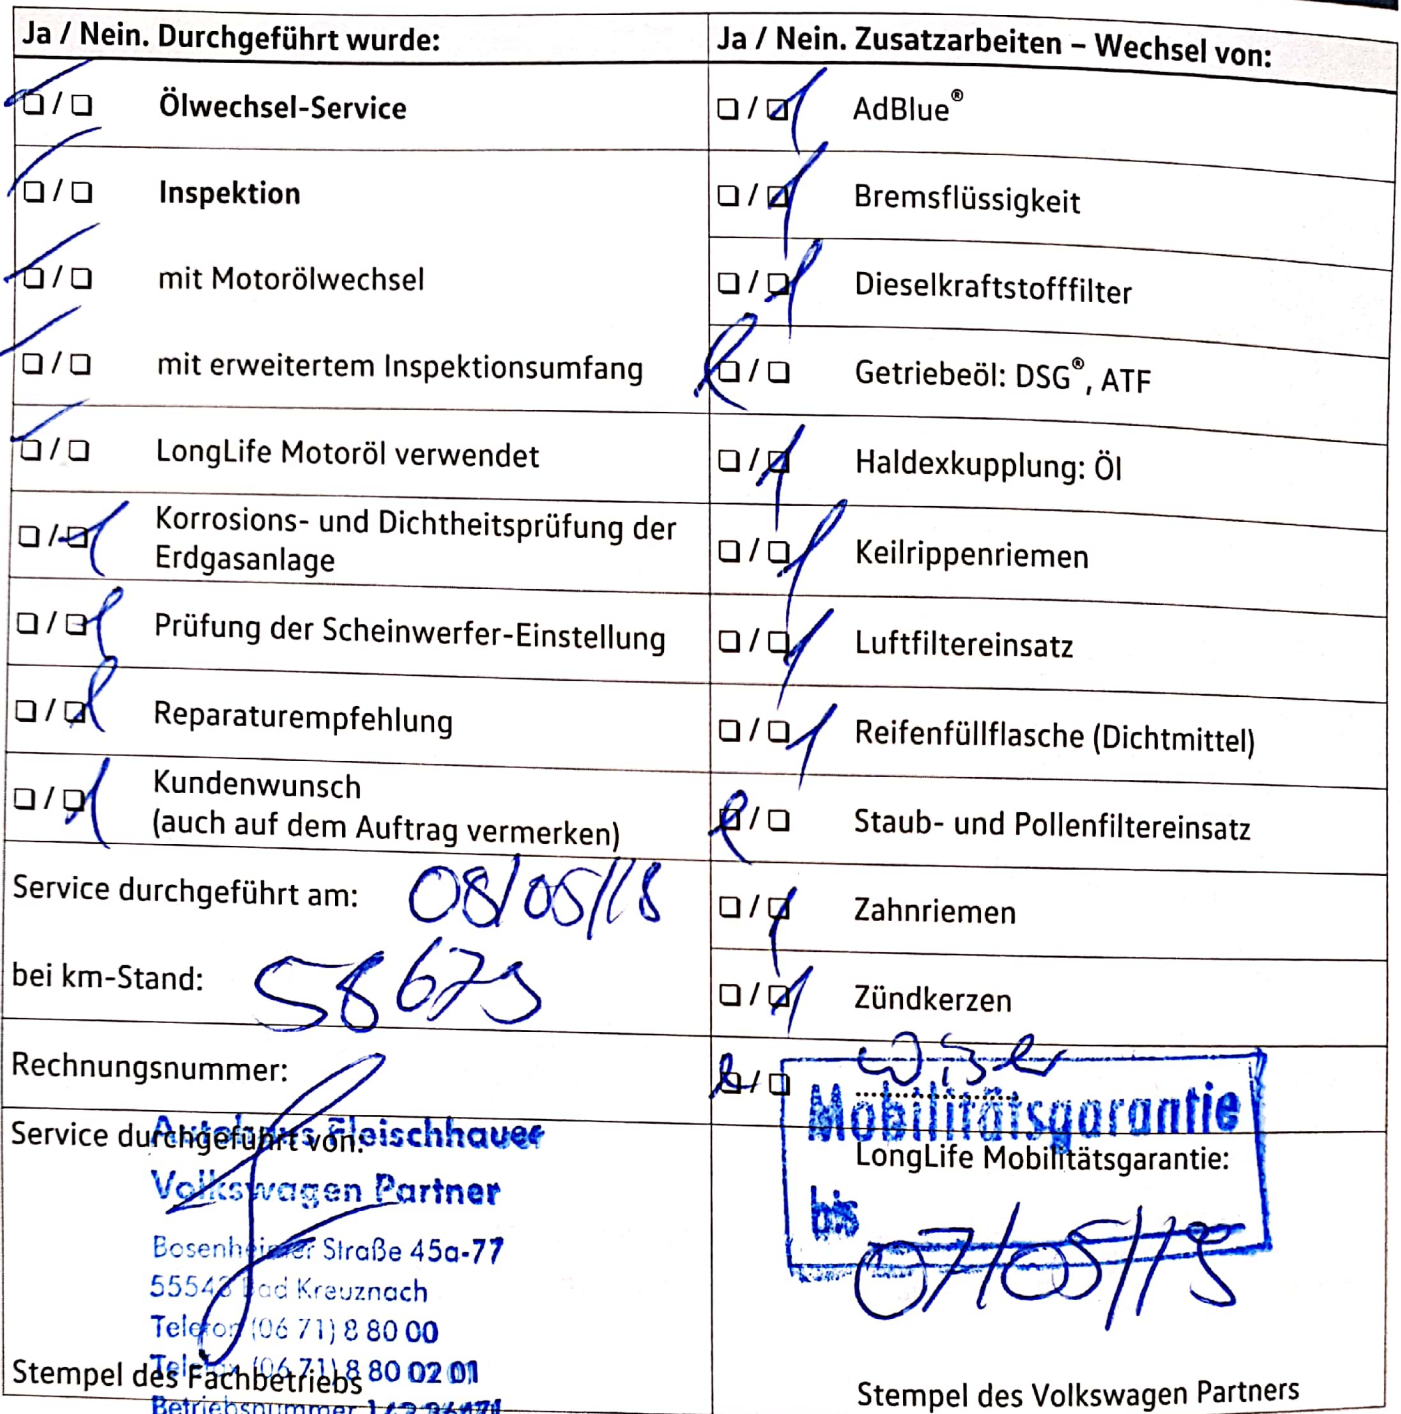 Ja / Nein. Durchgeführt wurde:
❏ / ❏ Ölwechsel-Service
❏ / ❏ Inspektion
❏ / ❏ mit Motorölwechsel
❏ / ❏ mit erweitertem Inspektionsumfang
❏ / ❏ LongLife Motoröl verwendet
❏ / ❏ Korrosions- und Dichtheitsprüfung der
Erdgasanlage
❏ / ❏ Prüfung der Scheinwerfer-Einstellung
❏ / ❏ Reparaturempfehlung
❏ / ❏ Kundenwunsch
(auch auf dem Auftrag vermerken)
Service durchgeführt am: 08/05/18
bei km-Stand:
Rechnungsnummer:
Service durchgeführt von:
Autohaus Fleischhauer
Volkswagen Partner
Bosenheimer Straße 45a-77
55543 Bad Kreuznach
Telefon (06 71) 8 80 00
Telefax (06 71) 8 80 02 01
Stempel des Fachbetriebs
Betriebsnummer
Ja / Nein. Zusatzarbeiten – Wechsel von:
❏ / ❏ AdBlue®
❏ / ❏ Bremsflüssigkeit
❏ / ❏ Dieselkraftstofffilter
❏ / ❏ Getriebeöl: DSG®, ATF
❏ / ❏ Haldexkupplung: Öl
❏ / ❏ Keilrippenriemen
❏ / ❏ Luftfiltereinsatz
❏ / ❏ Reifenfüllflasche (Dichtmittel)
❏ / ❏ Staub- und Pollenfiltereinsatz
❏ / ❏ Zahnriemen
❏ / ❏ Zündkerzen
❏ / ❏
Mobilitätsgarantie
LongLife Mobilitätsgarantie:
bis 07/05/19
Stempel des Volkswagen Partners